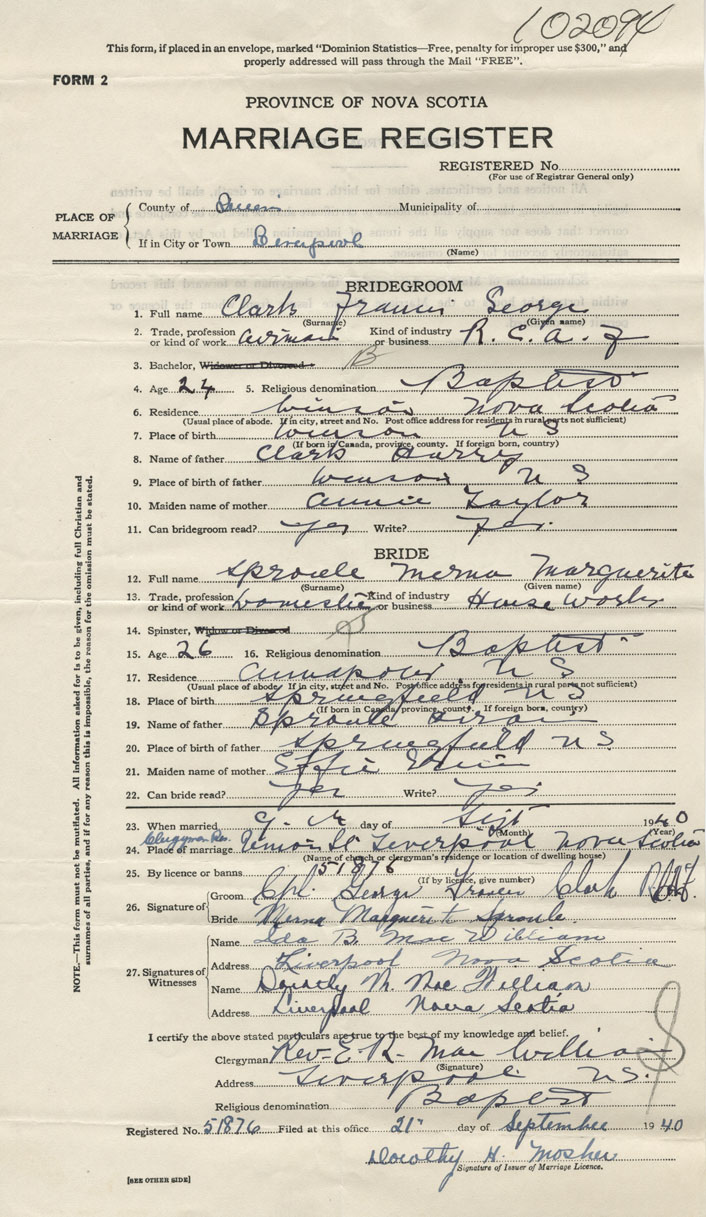 102094
This form, if placed in an envelope, marked "Dominion Statistics—Free, penalty for improper use $300," and
properly addressed will pass through the Mail "FREE".
FORM 2
PROVINCE OF NOVA SCOTIA
MARRIAGE REGISTER
REGISTERED No.
(For use of Registrar General only)
PLACE OF MARRIAGE
County of Queens Municipality of
If in City or Town Liverpool
(Name)
BRIDEGROOM
1. Full name Clark Francis George
(Surname) (Given name)
2. Trade, profession or kind of work airman Kind of industry or business R. C. A. F
3. Bachelor, Widower or Divorced B
4. Age 24 5. Religious denomination Baptist
6. Residence Nova Scotia
(Usual place of abode. If in city, street and No. Post office address for residents in rural parts not sufficient)
7. Place of birth N S
(If born in Canada, province, county. If foreign born, country)
8. Name of father Clark Harry
9. Place of birth of father N S
10. Maiden name of mother Annie Taylor
11. Can bridegroom read? Yes Write? Yes.
BRIDE
12. Full name Sproule Merna Marguerite
(Surname) (Given name)
13. Trade, profession or kind of work Domestic Kind of industry or business House Work
14. Spinster, Widow or Divorced S
15. Age 26 16. Religious denomination Baptist
17. Residence Annapolis, N S
(Usual place of abode. If in city, street and No. Post office address for residents in rural parts not sufficient)
18. Place of birth Springfield N S
(If born in Canada, province, county. If foreign born, country)
19. Name of father Sproule
20. Place of birth of father Springfield N S.
21. Maiden name of mother Effie
22. Can bride read? Yes Write? Yes
23. When married 9-th day of Sept 1940
(Month) (Year)
Clergyman Res.
24. Place of marriage Union St Liverpool Nova Scotia
(Name of church or clergyman's residence or location of dwelling house)
25. By licence or banns 51876
(If by licence, give number)
26. Signature of
Groom Cpl. George Francis Clark
Bride Merna Marguerite Sproule.
27. Signatures of Witnesses
Name Ida B. MacWilliam
Address Liverpool Nova Scotia
Name Dorothy M. MacWilliam
Address Liverpool Nova Scotia
I certify the above stated particulars are true to the best of my knowledge and belief.
Clergyman Rev. E. R. MacWilliam
(Signature)
Address Liverpool N.S.
Religious denomination Baptist
Registered No. 51876 Filed at this office 21st day of September 1940
Dorothy H. Mosher
Signature of Issuer of Marriage Licence.
[SEE OTHER SIDE]
NOTE.—This form must not be mutilated. All information asked for is to be given, including full Christian and
surnames of all parties, and if for any reason this is impossible, the reason for the omission must be stated.